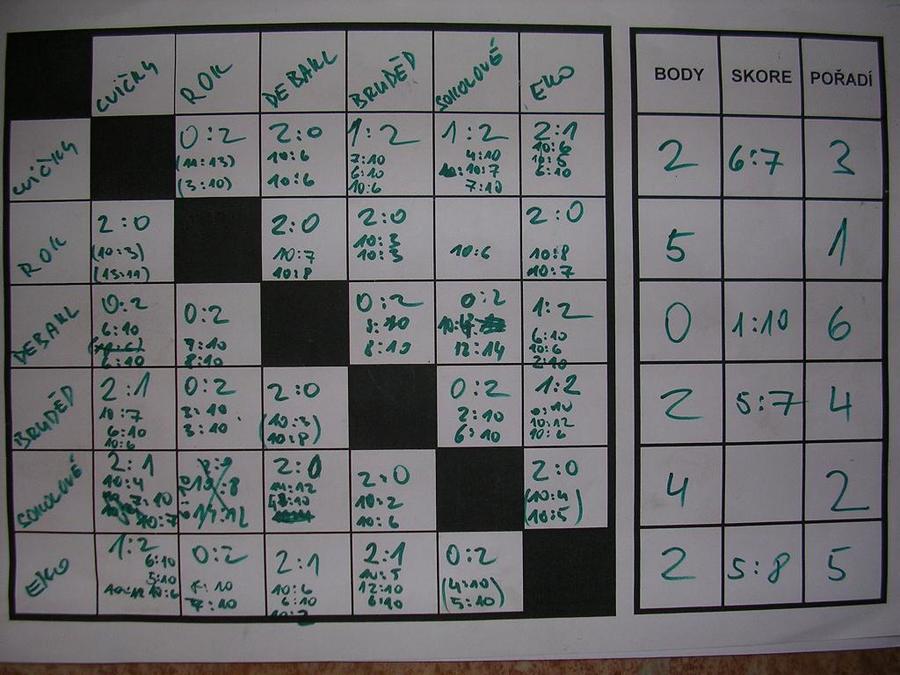 CVIČKY ROK DEBAKL BRUDĚD SOKOLOVÉ EKO BODY SKORE POŘADÍ
CVIČKY 0:2 2:0 1:2 1:2 2:1 2 6:7 3
(11:13) 10:6 7:10 4:10 10:6
(3:10) 10:6 6:10 10:7 10:5
10:6 7:10 6:10
ROK 2:0 2:0 2:0 2:0 5 1
(10:3) 10:7 10:3 10:6 10:8
(13:11) 10:8 10:3 10:7
DEBAKL 0:2 0:2 0:2 0:2 1:2 0 1:10 6
6:10 7:10 8:10 6:10
6:10 8:10 8:10 12:14 10:6
2:10
BRUDĚD 2:1 0:2 2:0 0:2 1:2 2 5:7 4
10:7 3:10 (10:3) 2:10 10:12
6:10 3:10 (10:8) 6:10 10:6
10:6
SOKOLOVÉ 2:1 2:0 2:0 2:0 4 2
10:4 14:12 10:2 (10:4)
7:10 10:6 (10:5)
10:7
EKO 1:2 0:2 2:1 2:1 0:2 2 5:8 5
6:10 10:6 10:5 (4:10)
5:10 7:10 6:10 12:10 5:10)
10:6 6:10